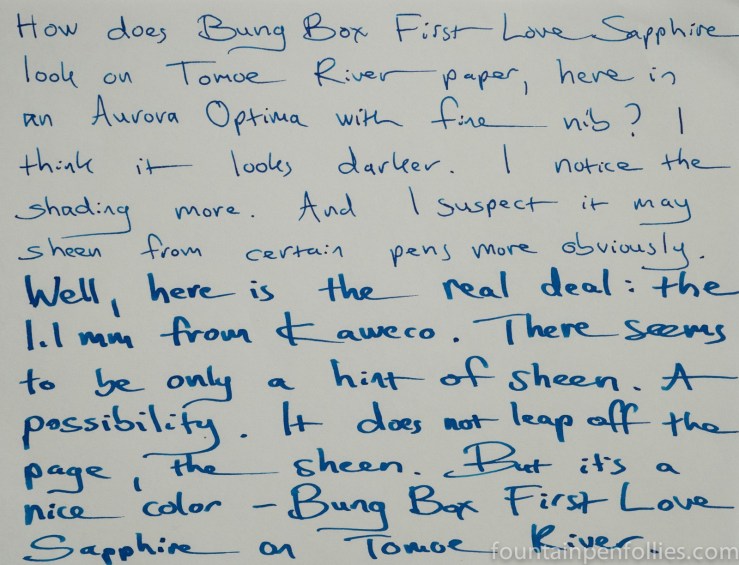 How does Bung Box First Love Sapphire
look on Tomoe River paper, here in
an Aurora Optima with fine nib? I
think it looks darker. I notice the
shading more. And I suspect it may
sheen from certain pens more obviously.
Well, here is the real deal: the
1.1 mm from Kaweco. There seems
to be only a hint of sheen. A
possibility. It does not leap off the
page, the sheen. But it's a
nice color - Bung Box First Love
Sapphire on Tomoe River.
fountainpenfollies.com